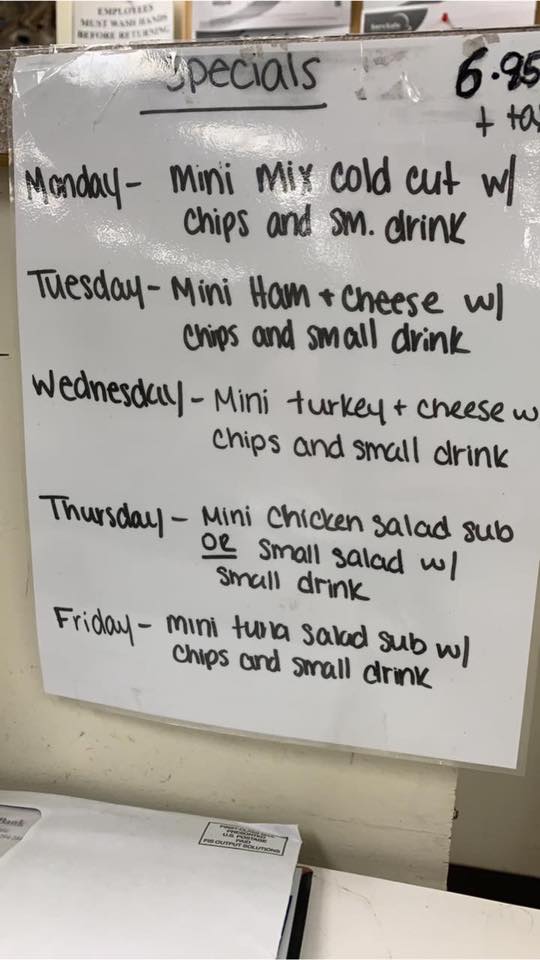 EMPLOYEES
MUST WASH HANDS
BEFORE RETURNING
Specials
6.95
+ tax
Monday - Mini Mix cold cut w/
chips and sm. drink
Tuesday - Mini Ham + cheese w/
chips and small drink
Wednesday - Mini turkey + cheese w
chips and small drink
Thursday - Mini chicken salad sub
OR small salad w/
small drink
Friday - mini tuna salad sub w/
chips and small drink
Bank
FIRST-CLASS MAIL
PRESORTED
U.S. POSTAGE
PAID
FIS OUTPUT SOLUTIONS